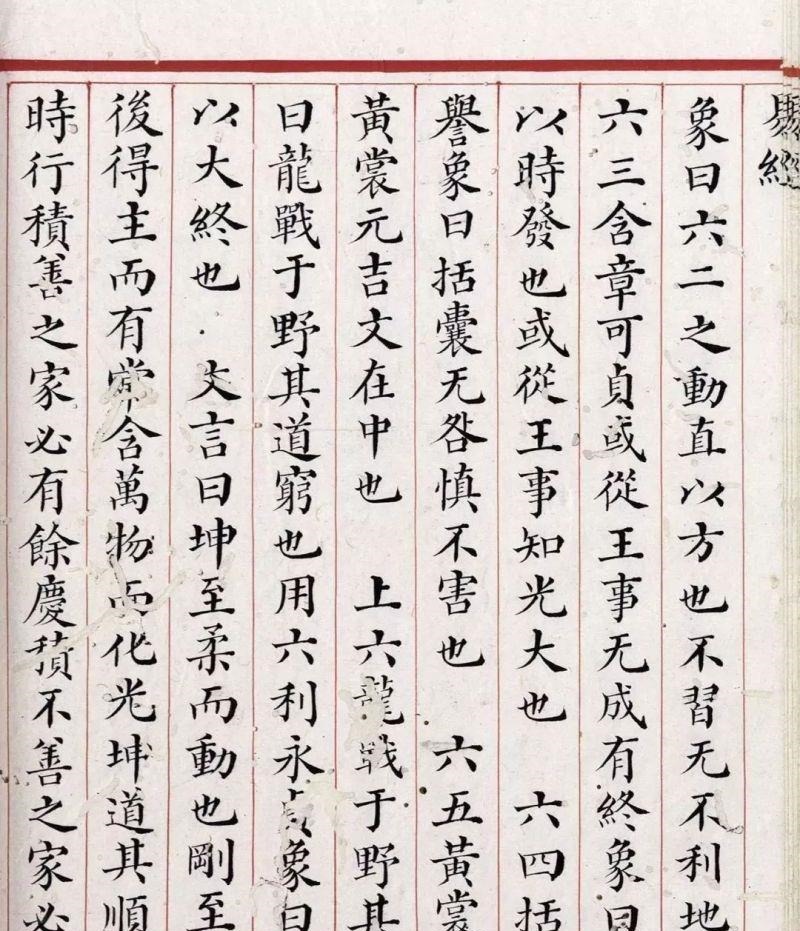 經
象曰六二之動直以方也不習无不利地
六三含章可貞或從王事无成有終象曰
以時發也或從王事知光大也 六四括
譽象曰括囊无咎慎不害也 六五黃裳
黃裳元吉文在中也 上六龍戰于野其
曰龍戰于野其道窮也用六利永貞象曰
以大終也 文言曰坤至柔而動也剛至
後得主而有常含萬物而化光坤道其順
時行積善之家必有餘慶積不善之家必